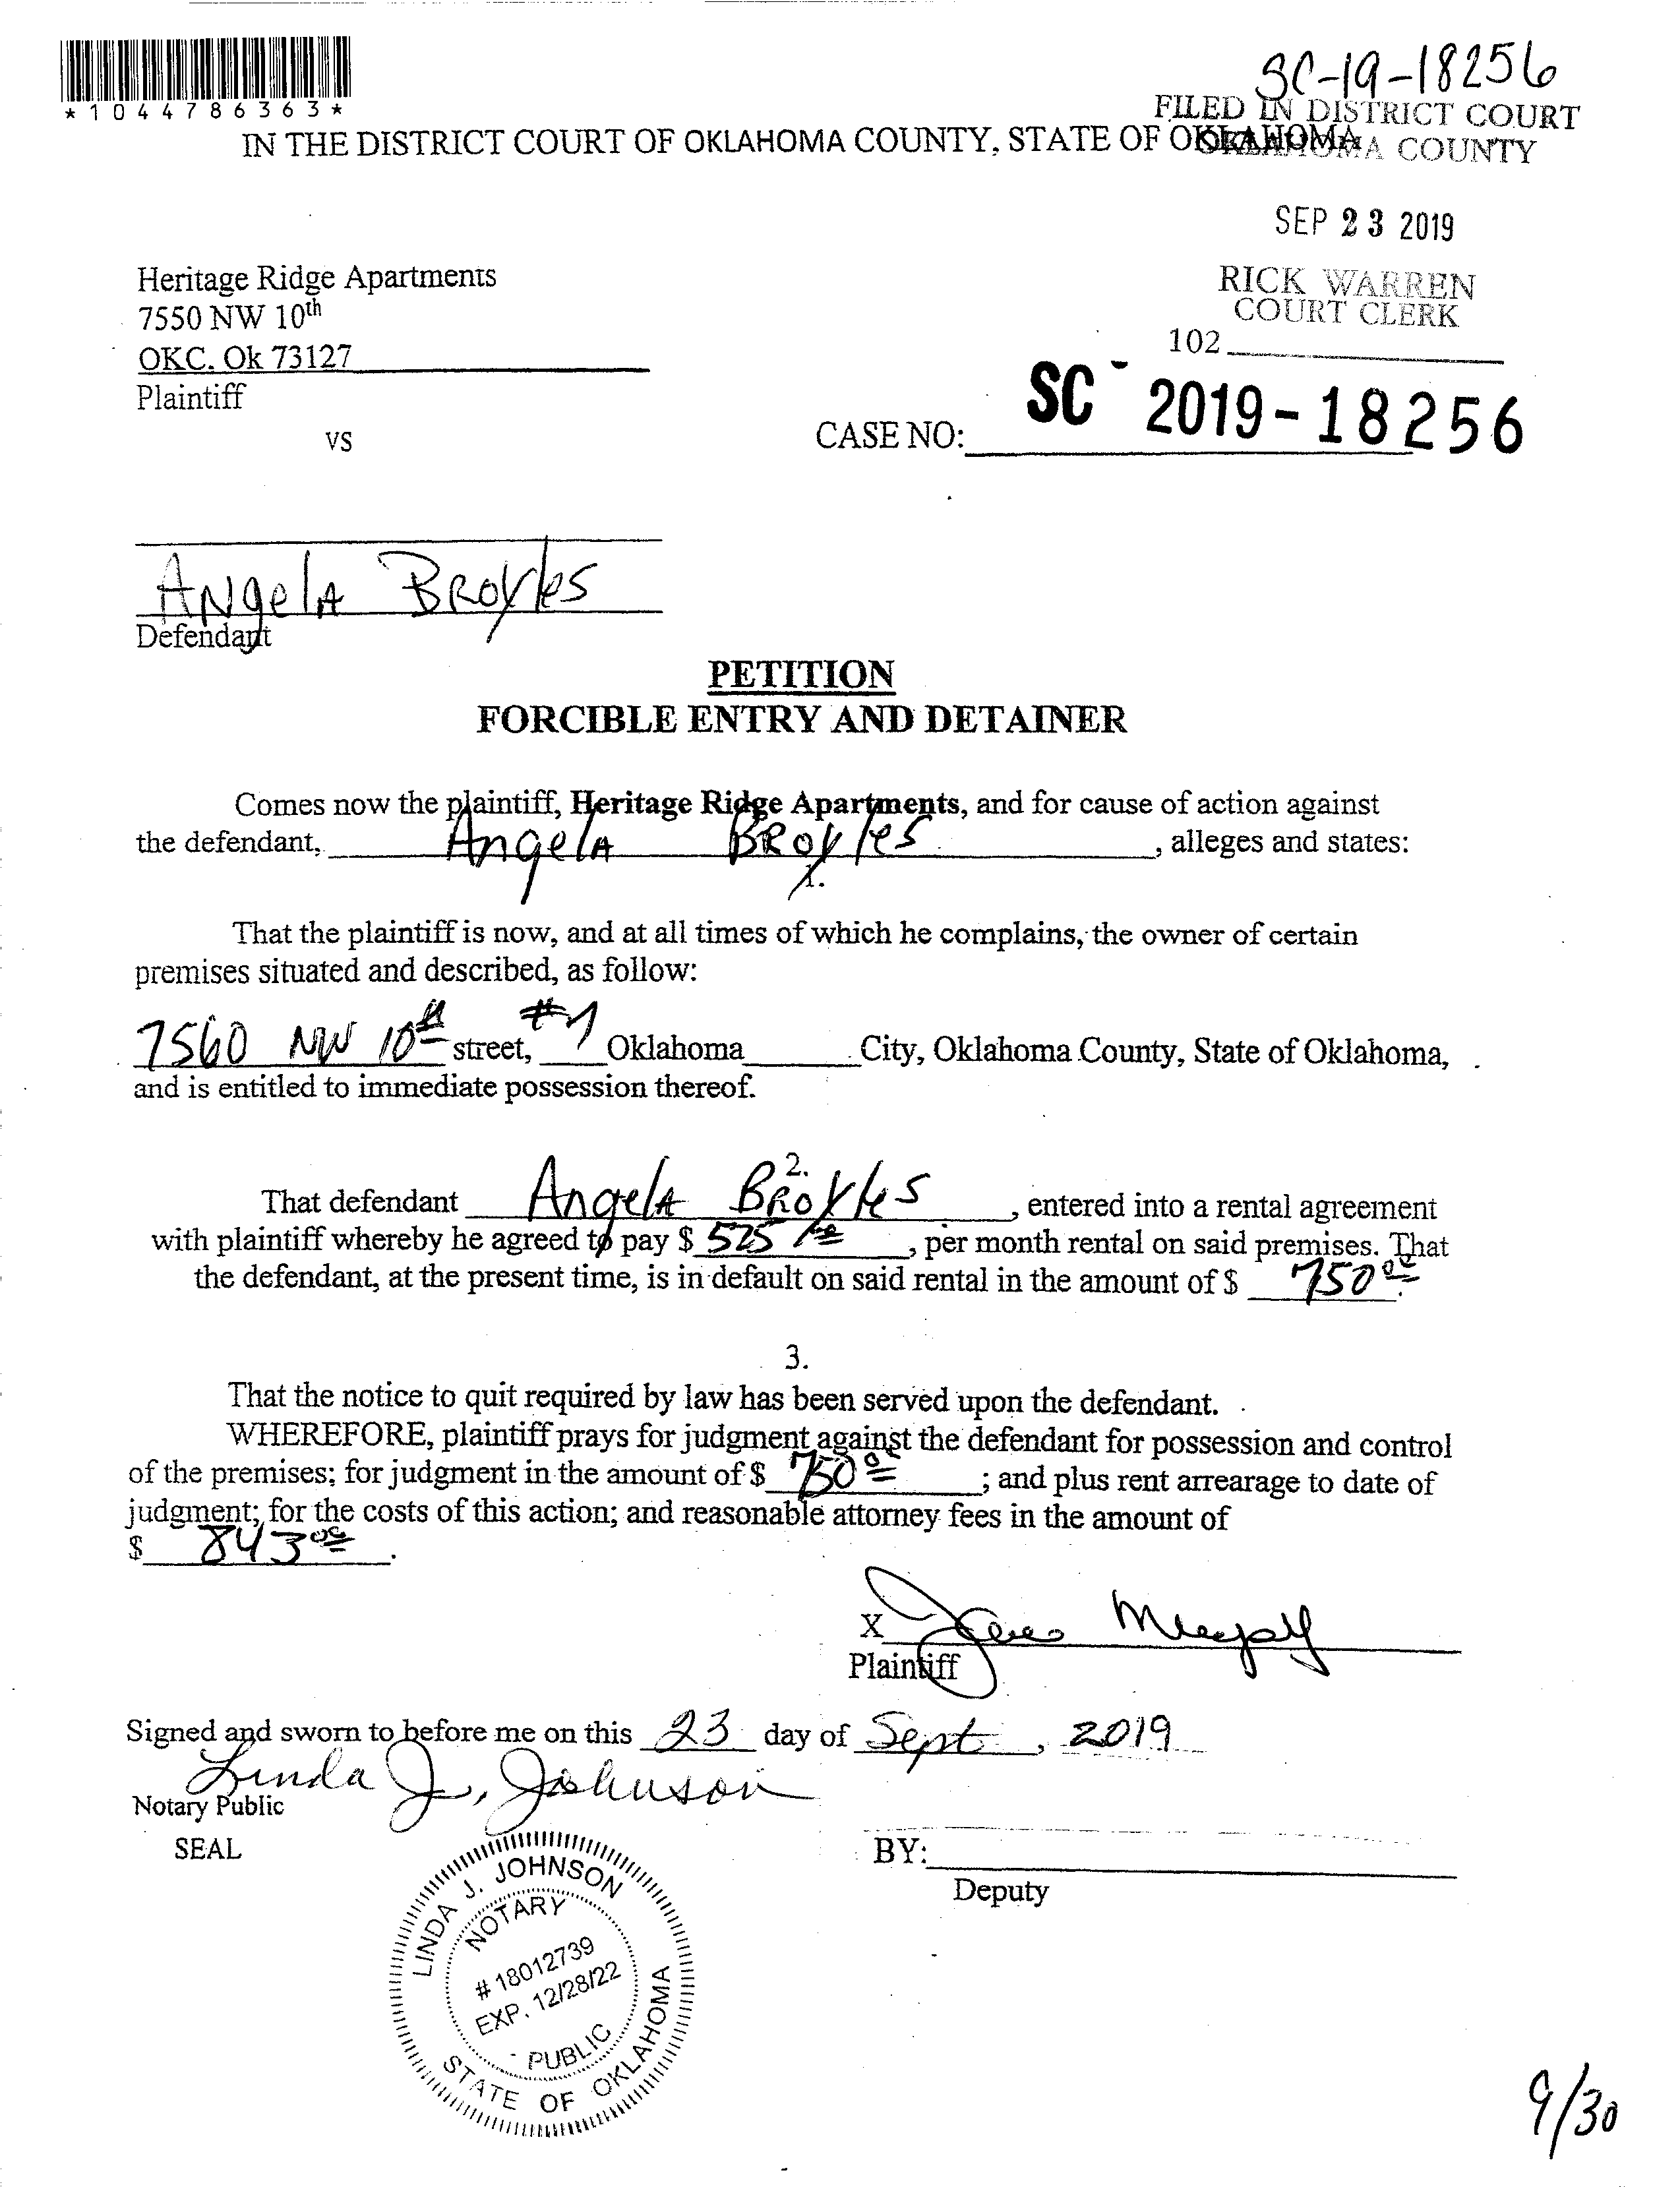 *1044786363*
SC-19-18256
FILED IN DISTRICT COURT
OKLAHOMA COUNTY
IN THE DISTRICT COURT OF OKLAHOMA COUNTY, STATE OF OKLAHOMA
SEP 23 2019
RICK WARREN
COURT CLERK
102
Heritage Ridge Apartments
7550 NW 10th
OKC. Ok 73127
Plaintiff
VS
CASE NO: SC - 2019-18256
Angela Broyles
Defendant
PETITION
FORCIBLE ENTRY AND DETAINER
Comes now the plaintiff, Heritage Ridge Apartments, and for cause of action against
the defendant, Angela Broyles, alleges and states:
1.
That the plaintiff is now, and at all times of which he complains, the owner of certain
premises situated and described, as follow:
7560 NW 10th street, #1 Oklahoma City, Oklahoma County, State of Oklahoma,
and is entitled to immediate possession thereof.
2.
That defendant Angela Broyles, entered into a rental agreement
with plaintiff whereby he agreed to pay $ 525, per month rental on said premises. That
the defendant, at the present time, is in default on said rental in the amount of $ 750 00.
3.
That the notice to quit required by law has been served upon the defendant.
WHEREFORE, plaintiff prays for judgment against the defendant for possession and control
of the premises; for judgment in the amount of $ 750 00; and plus rent arrearage to date of
judgment; for the costs of this action; and reasonable attorney fees in the amount of
$ 843 00.
X
Plaintiff
Signed and sworn to before me on this 23 day of Sept, 2019
Linda J. Johnson
Notary Public
SEAL
BY:
Deputy
LINDA J. JOHNSON
NOTARY
# 18012739
EXP. 12/28/22
PUBLIC
STATE OF OKLAHOMA
9/30